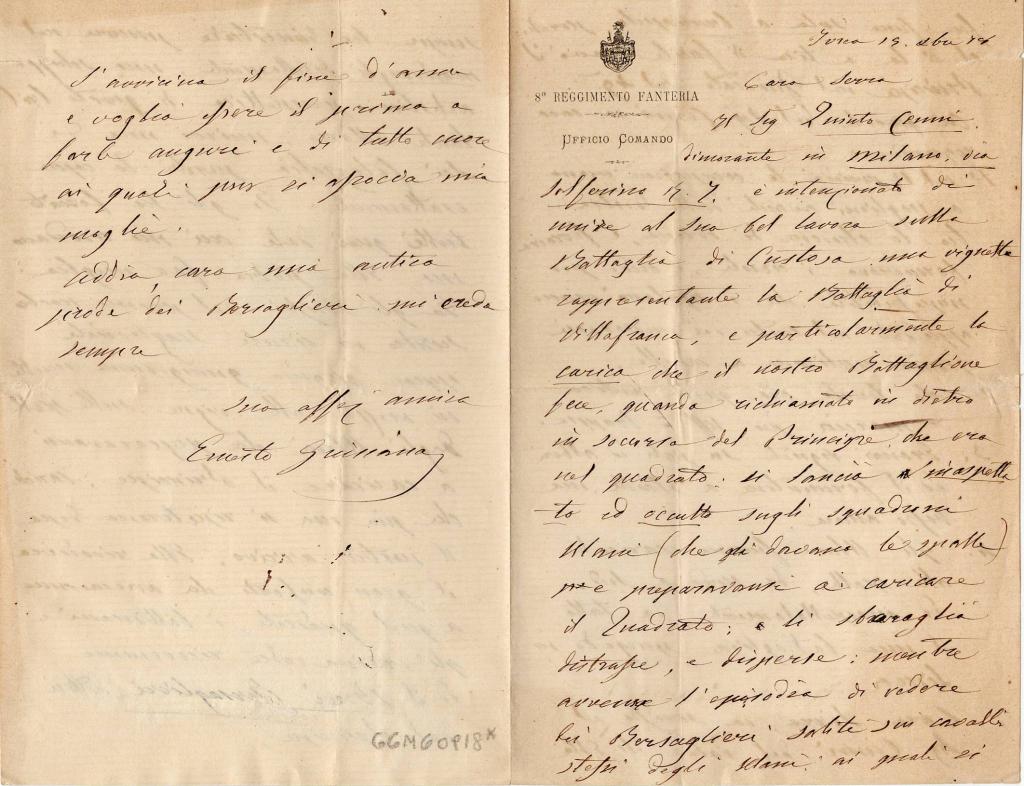 8º REGGIMENTO FANTERIA
UFFICIO COMANDO
Ivrea 19. xbre 78
Caro Serra
Il Sig Quinto Cenni
dimorante in Milano, via
Solferino N. 7. è intenzionato di
unire al suo bel lavoro sulla
Battaglia di Custosa una vignetta
rappresentante la Battaglia di
Villafranca, e particolarmente la
carica che il nostro Battaglione
fece, quando richiamato in dietro
in socorso del Principe, che era
nel quadrato; si lanciò inaspetta
to ed occulto sugli squadroni
Ulani (che gli davano le spalle)
e preparavansi a caricare
il Quadrato; e li sbaragliò
distrusse, e disperse: mentre
avvenne l'episodio di vedere
dei Bersaglieri saliti sui cavalli
stessi degli Ulani: ai quali si
S'avvicina il fine d'anno
e voglio essere il primo a
farle auguri e di tutto cuore
ai quali pur si associa mia
moglie.
Addio, caro mio antico
prode dei Bersaglieri mi creda
sempre
suo affez amico
Ernesto
GGMG0918*